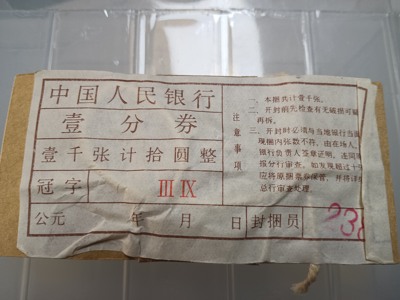 中国人民银行
壹分券
壹千张计拾圆整
冠字 III IX
公元 年 月 日 封捆员 238
注意事项
一、本捆共计壹千张。
二、开封前先检查有无破损可疑
再拆。
三、开封时必须与当地银行当面
现捆内张数不符，由在场人、
银行负责人签章证明，连同
拨分行审查。如发现超过十
应将原捆票券保管，并将详
总行审查处理。